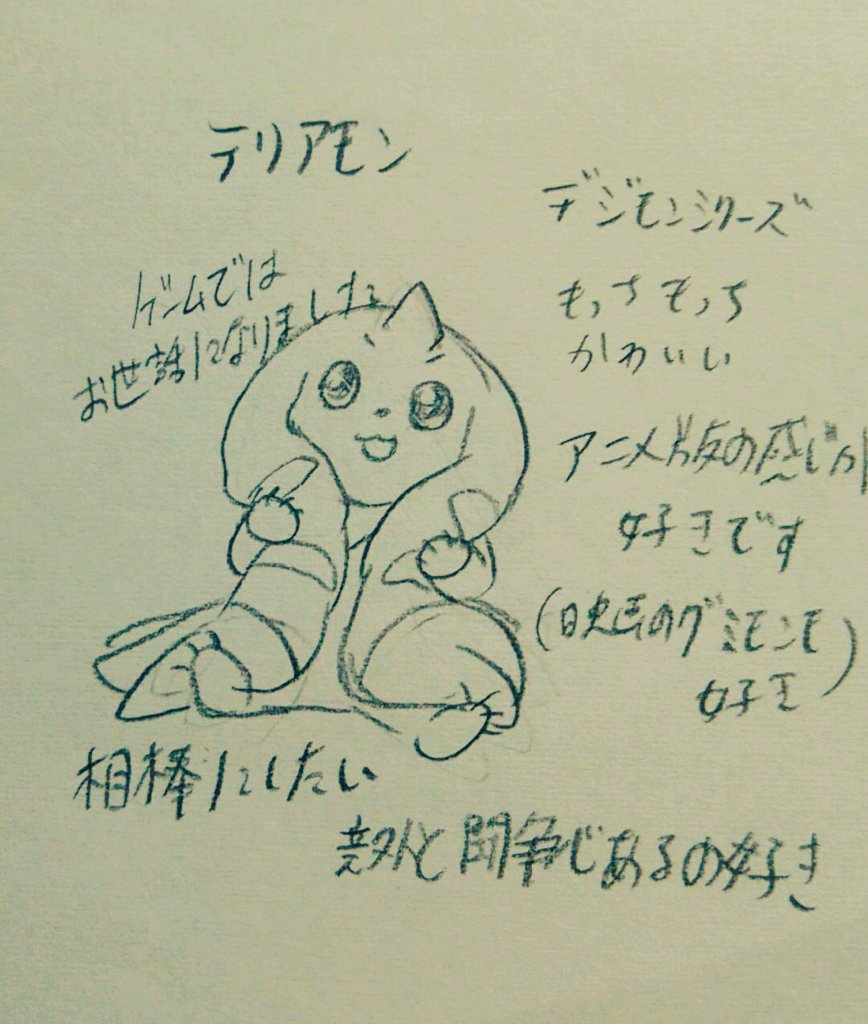 テリアモン
デジモンシリーズ
ゲームでは
お世話になりました
もっちもっち
かわいい
アニメ版の感じが
好きです
(映画のグミモンも
好き)
相棒にしたい
意外と闘争心あるの好き